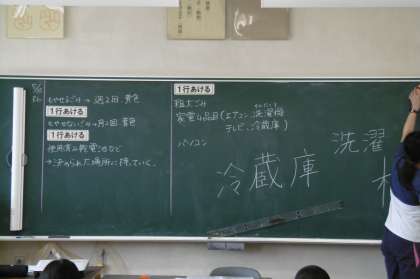 もやせるごみ→週2回 黄色
1行あける
もやせないごみ→月2回 青色
1行あける
使用済み乾電池など
→決められた場所に持っていく。
1行あける
粗大ごみ
家電4品目(エアコン、洗濯機
テレビ、冷蔵庫)
パソコン
洗濯
冷蔵庫